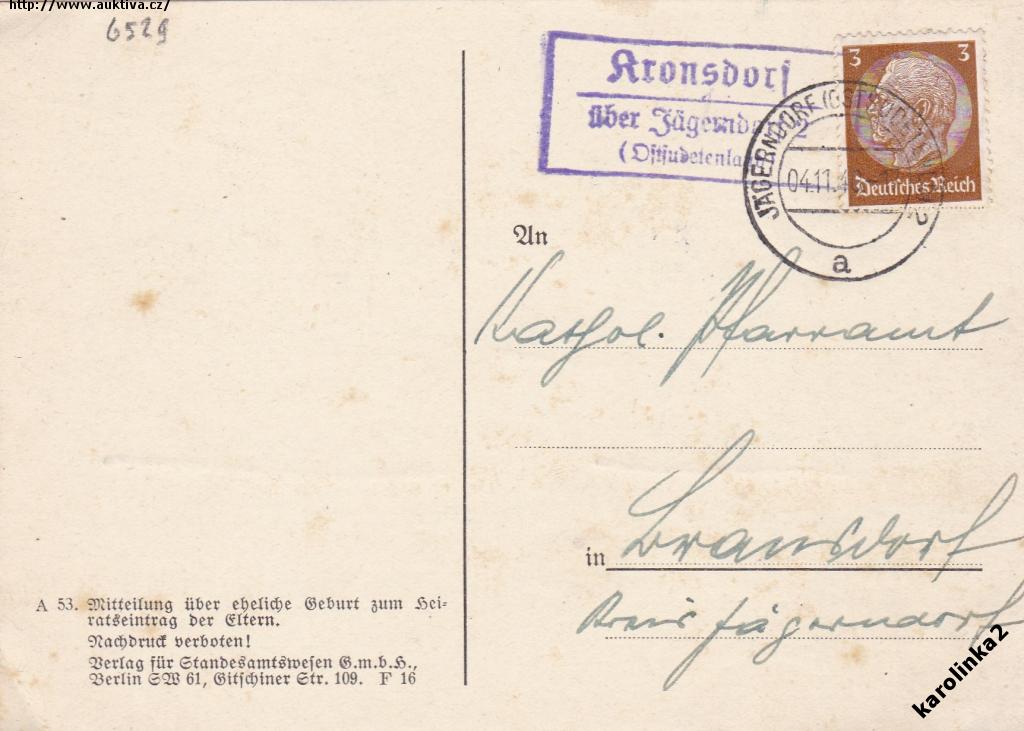 http://www.auktiva.cz/
6529
Kronsdorf
über Jägerndorf 2
(Ostsudetenland)
3 3
Deutsches Reich
JÄGERNDORF (OSTSUDETENL) 2
04.11.4
a
An
Kathol. Pfarramt
in Bransdorf
Kreis Jägerndorf
A 53. Mitteilung über eheliche Geburt zum Hei-
ratseintrag der Eltern.
Nachdruck verboten!
Verlag für Standesamtswesen G.m.b.H.,
Berlin SW 61, Gitschiner Str. 109. F 16
karolinka2